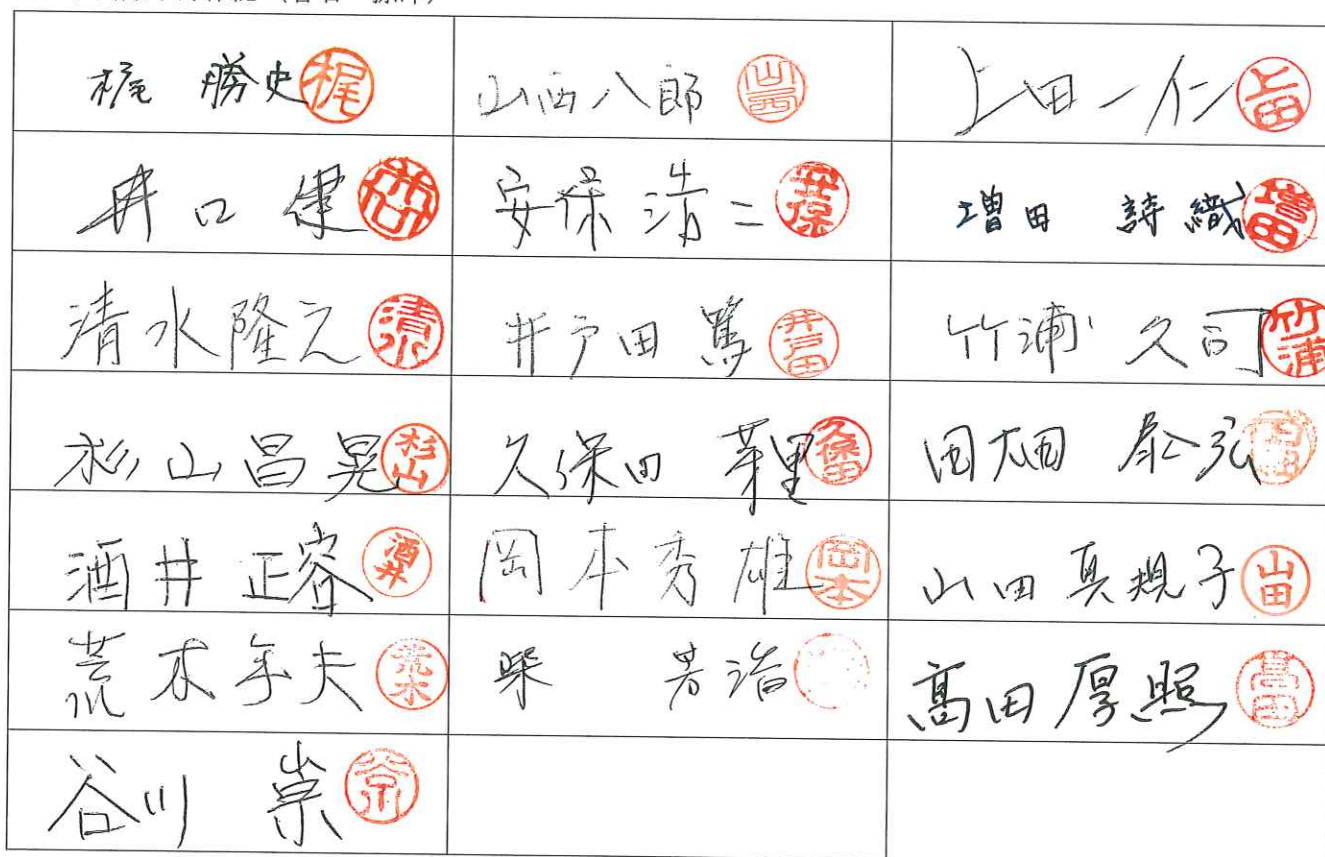 梶 勝史 梶 山西八郎 山西 上田一仁 上田
井口 健 安保 浩二 安保 増田 詩織 増田
清水隆元 清水 井戸田 篤 井戸田 竹浦 久司 竹浦
杉山昌晃 杉山 久保田 芽里 久保田 田畑 泰弘
酒井 正容 酒井 岡本秀雄 岡本 山田真規子 山田
荒木年夫 荒木 柴 芳浩 髙田厚照 髙田
谷川 崇 谷川